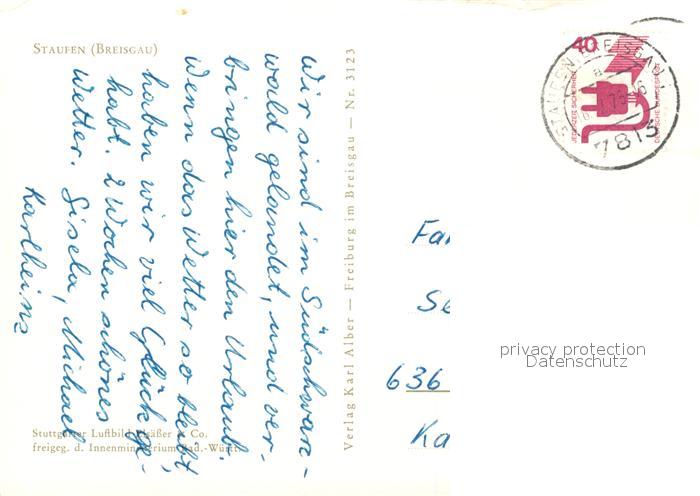 STAUFEN (BREISGAU)
Wir sind im Südschwarz-
wald gelandet, und ver-
bringen hier den Urlaub.
Wenn das Wetter so bleibt
haben wir viel Glück ge-
habt. 2 Wochen schönes
Wetter. Gisela, Michael
Karlheinz
Stuttgarter Luftbild Elsäßer & Co.
freigeg. d. Innenministerium Bad.-Württ.
Verlag Karl Alber — Freiburg im Breisgau — Nr. 3123
40
JEDERZEIT SICHERHEIT
DEUTSCHE BUNDESPOST
STAUFEN, BREISGAU
7813
Fa
Se
636
Ka
privacy protection
Datenschutz